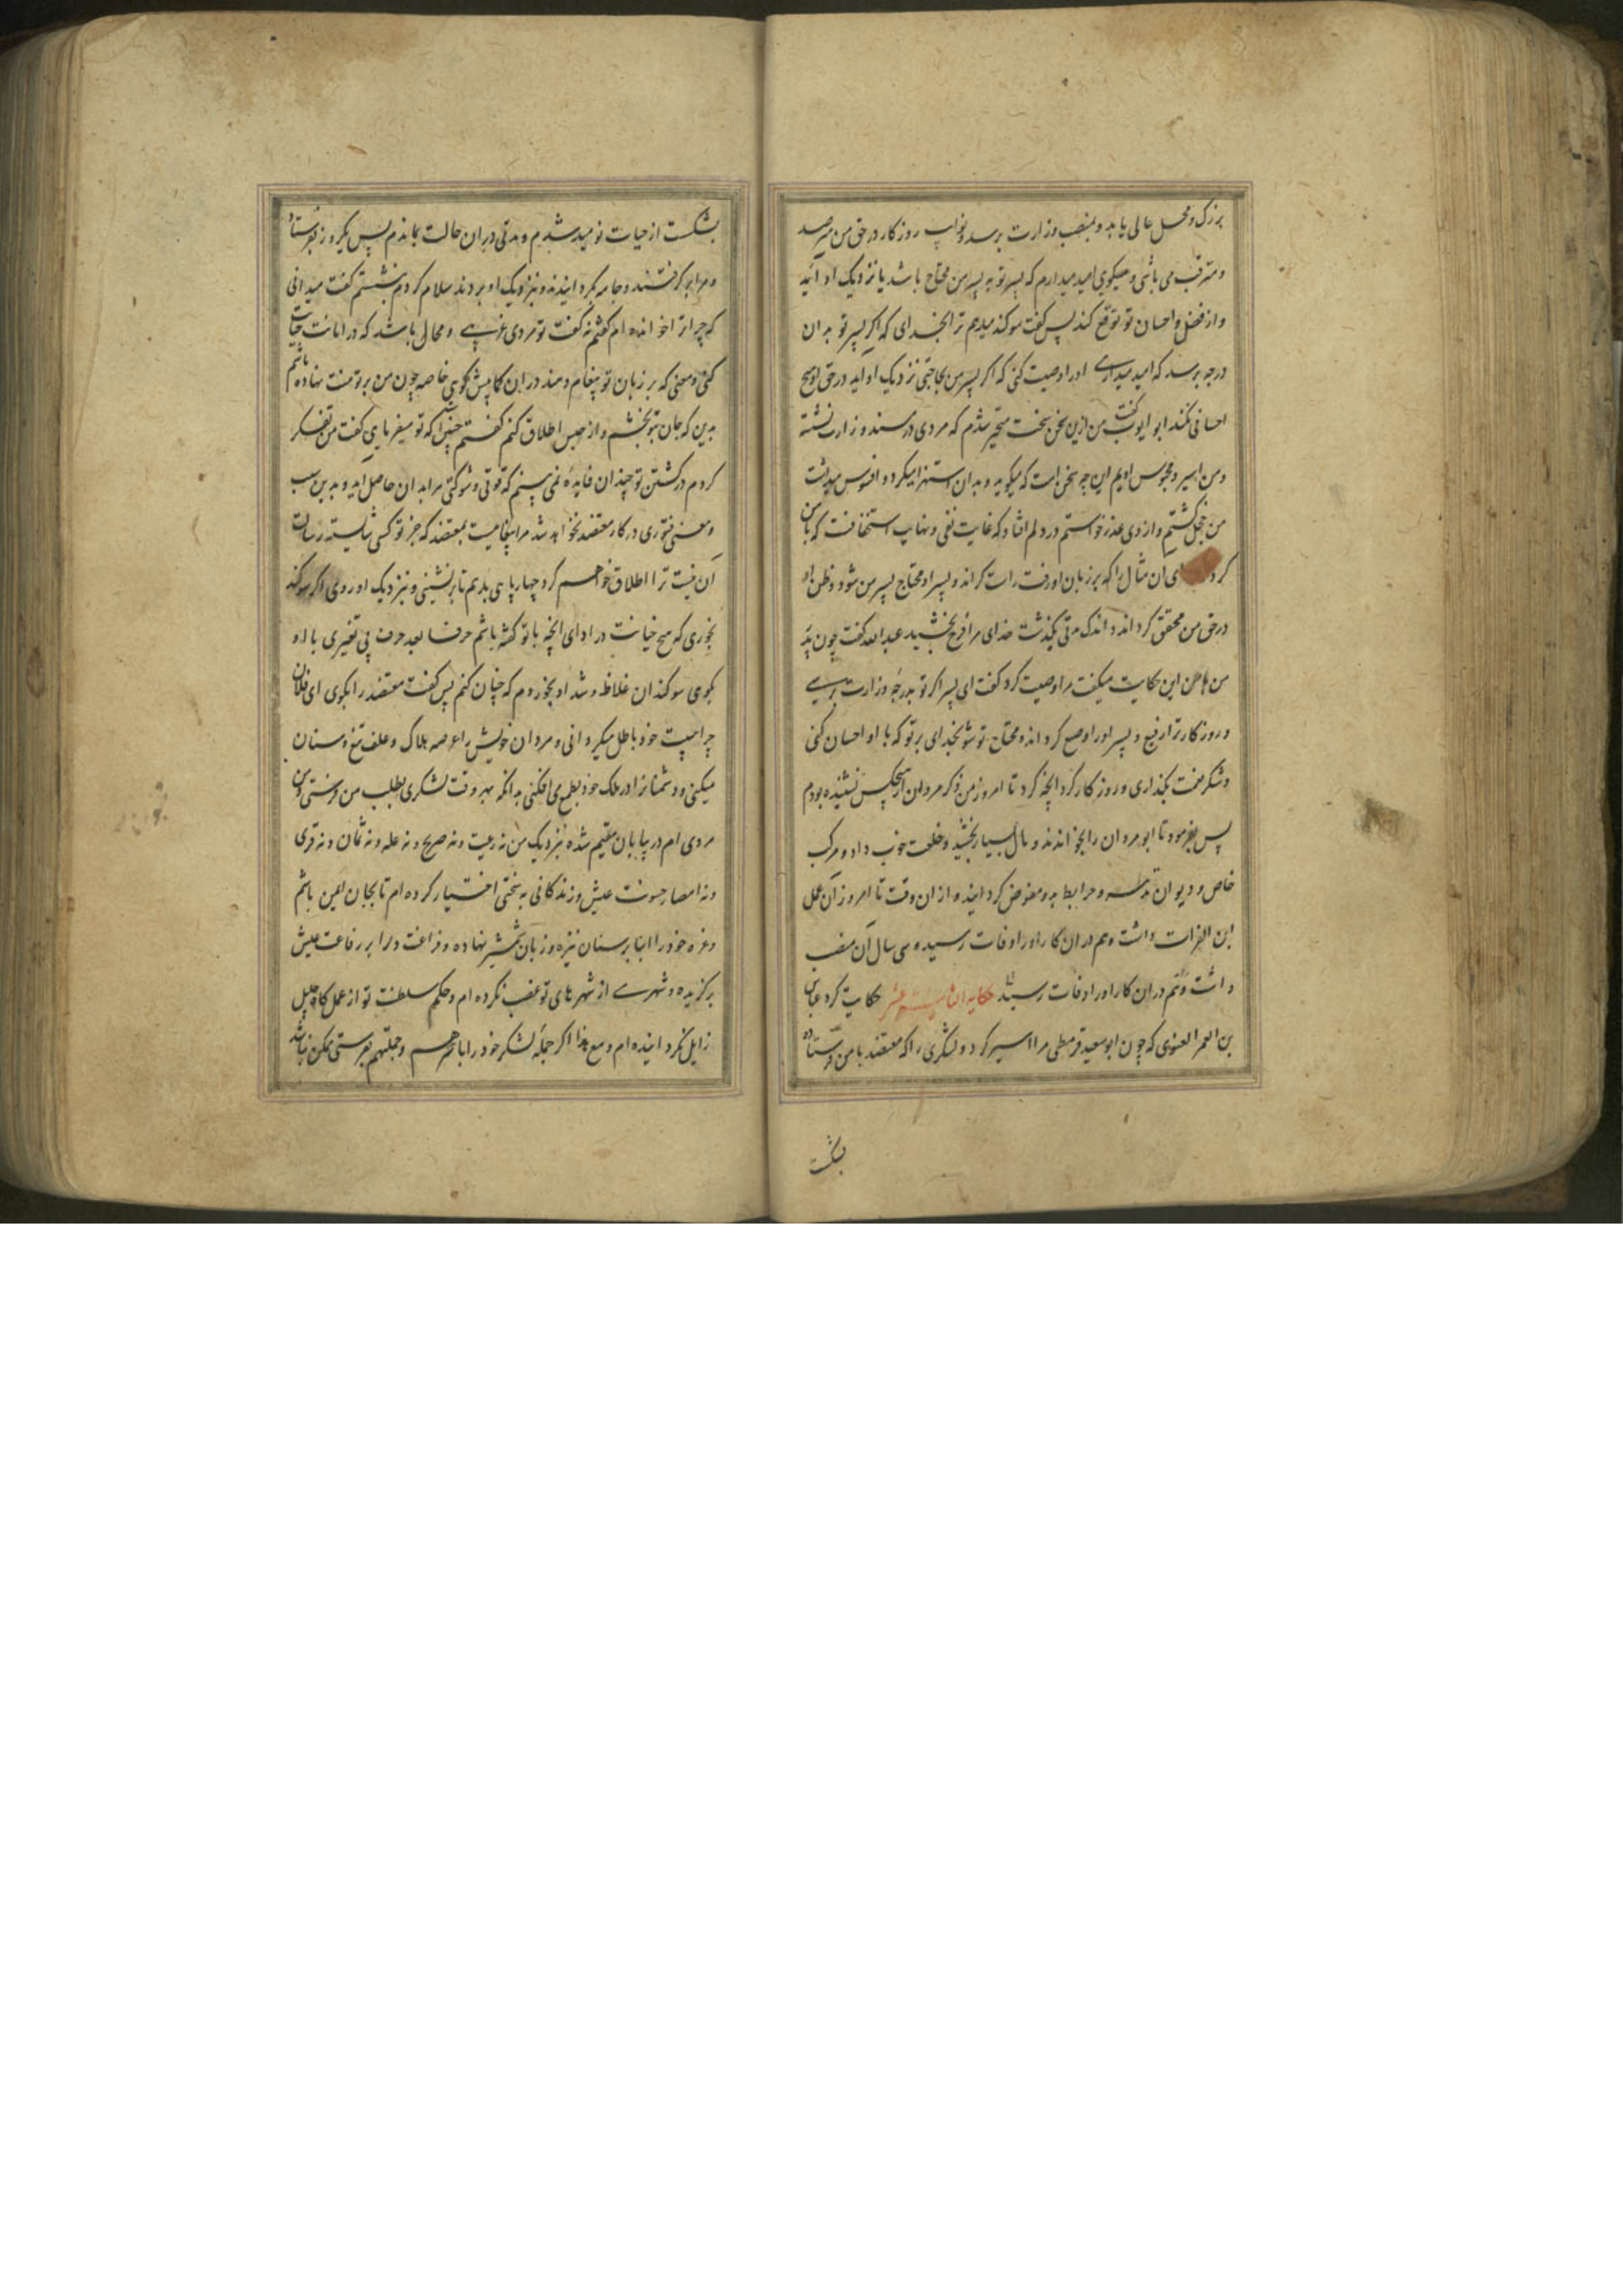 بزرک و محل عالی یابد و بمنصب وزارت برسد و نوایب روزکار در حق من مترصد
و مترقب می باشی و میکویی امید میدارم که پسر تو به پسر من محتاج باشد یا نزدیک او آید
و از فضل و احسان تو توقع کند پس کفت سوکند میدهم ترا بخدای که اکر پسر تو به ان
درجه برسد که امید میداری او را وصیت کنی که اکر پسر من بحاجتی نزدیک او آید در حق او هیچ
احسانی نکند ابو ایوب کفت من ازین سخن سخت متحیر شدم که مردی در مسند وزارت نشسته
و من اسیر و محبوس اویم این چه سخن است که میکوید و بدان استهزا میکرد و افسوس میداشت
من خجل کشتم و از وی عذر خواستم در دلم افتاد که غایت نفی و نهایت استخفافست که با من
کرد ان مثال را که بر زبان او رفت راست کرداند و پسر او محتاج پسر من شود و ظن او
در حق من محقق کرداند و اندک مدتی بکذشت خدای مرا فرج بخشید عبد الله کفت چون پدر
من با من این حکایت میکفت مرا وصیت کرد کفت ای پسر اکر تو بدرجه وزارت برسی
و روزکار ترا رفیع و پسر او را وضیع کرداند و محتاج تو شود بخدای بر تو که با او احسان کنی
و شکر نعمت بکذاری و روزکار کرد انچه کرد تا امروز من ذکر مروان از هیچکس نشنیده بودم
پس بفرمود تا ابو مروان را بخواندند و مال بسیار بخشید و خلعت خوب داد و مرکب
خاص و دیوان و مرابط بدو مفوض کردانید و از ان وقت تا امروز آن عمل
ابن الفرات داشت و هم در ان کار او را وفات رسید و سی سال آن منصب
داشت و هم در ان کار او را وفات رسید حکایت کرد عباس
بن العمر الغنوی که چون ابو سعید قرمطی مرا اسیر کرد و لشکری را که معتضد با من فرستاده
بشکست
بشکست از حیات نومید شدم و مدتی در ان حالت بماندم پس یکروز بفرستاد
و مرا برکرفتند و جامه بکردانیدند و نزدیک او بردند سلام کردم و بنشستم کفت میدانی
که چرا ترا خوانده ام کفتم نه کفت تو مردی عربی و محال باشد که در امانت خیانت
کنی و معنی که بر زبان تو پیغام دهند در ان کم و بیش کویی خاصه چون من بر تو منت نهاده باشم
بدین که جان بتو بخشم و از حبس اطلاق کنم کفتم چنین است که تو میفرمایی کفت من تفکر
کردم در کشتن تو چندان فایده نمی بینم که قوتی و شوکتی مرا بدان حاصل آید و بدین سبب
و معنی فتوری در کار معتضد نخواهد شد مرا پیغامیست بمعتضد که جز تو کسی شایسته رسالت
آن نیست ترا اطلاق خواهم کرد چهارپایی بدهم تا برنشینی و نزدیک او روی اکر سوکند
بخوری که هیچ خیانت در ادای انچه با تو کفته باشم حرفا بعد حرف بی تغییری با او
بکوی سوکندان غلاظ و شداد بخوردم که چنان کنم پس کفت معتضد را بکوی ای فلان
چرا هیبت خود باطل میکردانی و مردان خویش را عرصه هلاک و علف تیغ و سنان
میکنی و دشمنانرا در ملک خود بطمع می افکنی بدانکه بهر وقت لشکری بطلب من فرستی و من
مردی ام در بیابان مقیم شده نزدیک من نه رعیت و نه ضریح و نه غله و نه ثمان و نه قری
و نه امصار خسونت عیش و زندکانی به سختی اختیار کرده ام تا بجان ایمن باشم
و عزه خود را ابنا بر سنان نیزه و زبان شمشیر نهاده و فراغت و را بر رفاعت عیش
برکزیده و شهری از شهرهای تو غصب نکرده ام و حکم سلطنت تو از عمل کار جلیل
زایل نکردانیده ام و مع هذا اکر جمله لشکر خود را باسرهم و جملتهم بفرستی ممکن نباشد